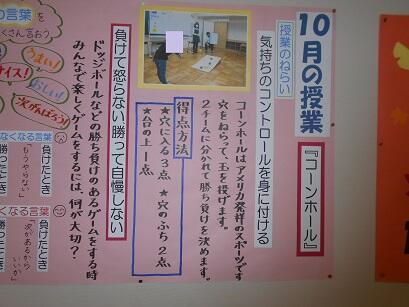 10月の授業
『コーンホール』
授業のねらい
気持ちのコントロールを身に付ける
コーンホールはアメリカ発祥のスポーツです
穴をねらって、玉を投げます。
2チームに分かれて勝ち負けを決めます。
得点方法
★穴に入る3点 ★穴のふち2点
★台の上1点
負けて怒らない勝って自慢しない
ドッジボールなどの勝ち負けのあるゲームをする時
みんなで楽しくゲームをするには、何が大切？
の言葉を
くさん言おう
うまい!
ナイス!
おしい!
次がんばろう!
なくなる言葉
負けたとき
「もうやらない」
勝ったとき
くなる言葉
負けたとき
「次があるから
いいか」
勝ったとき